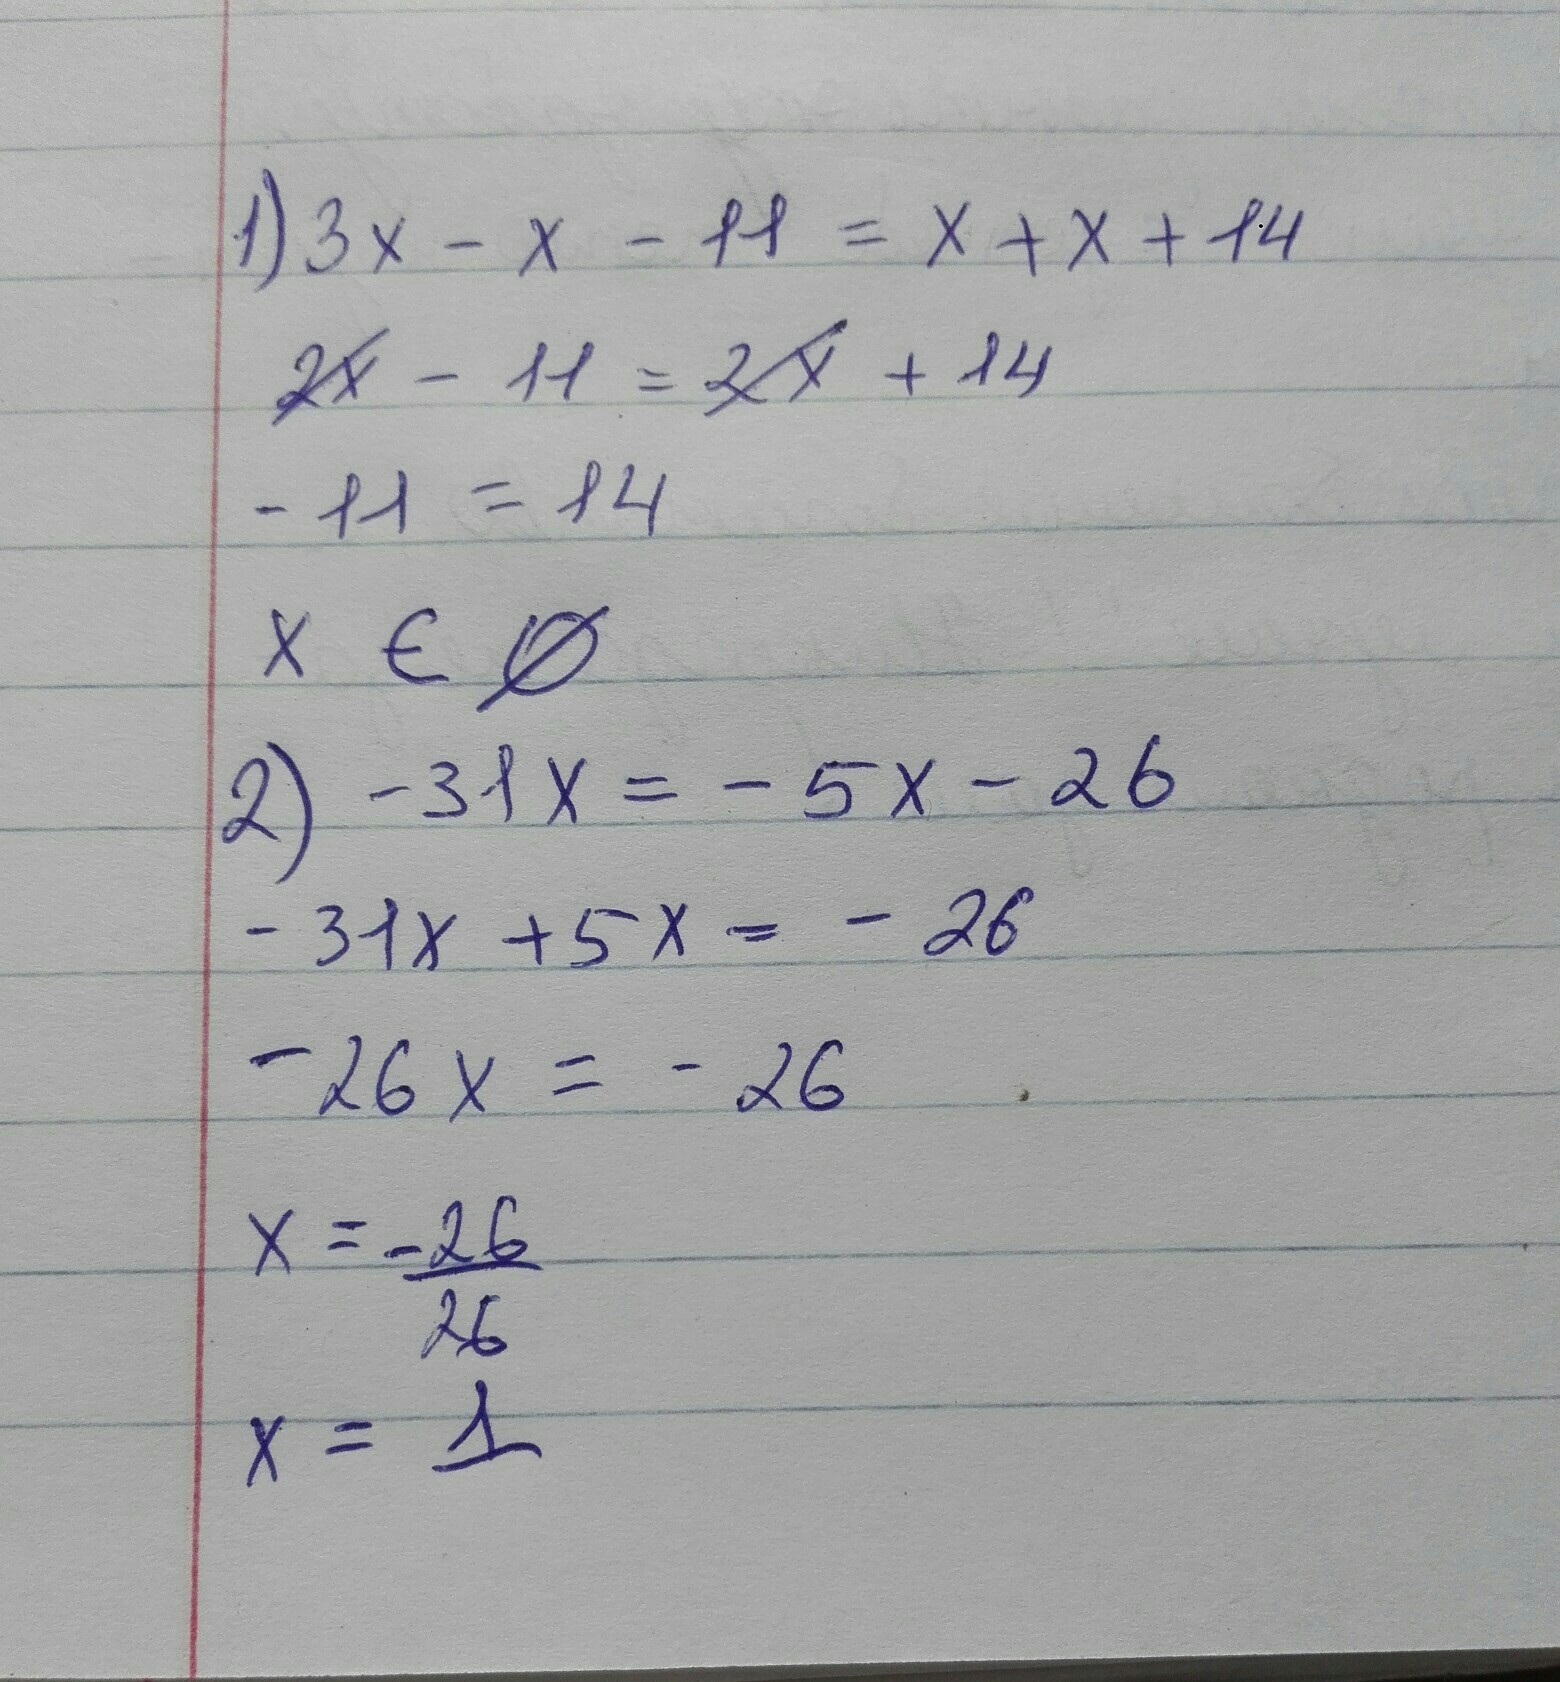 1) 3x - x - 11 = x + x + 14
2x - 11 = 2x + 14
- 11 = 14
x € ∅
2) - 31x = - 5x - 26
- 31x + 5x = - 26
- 26x = - 26
x = -26/26
x = 1